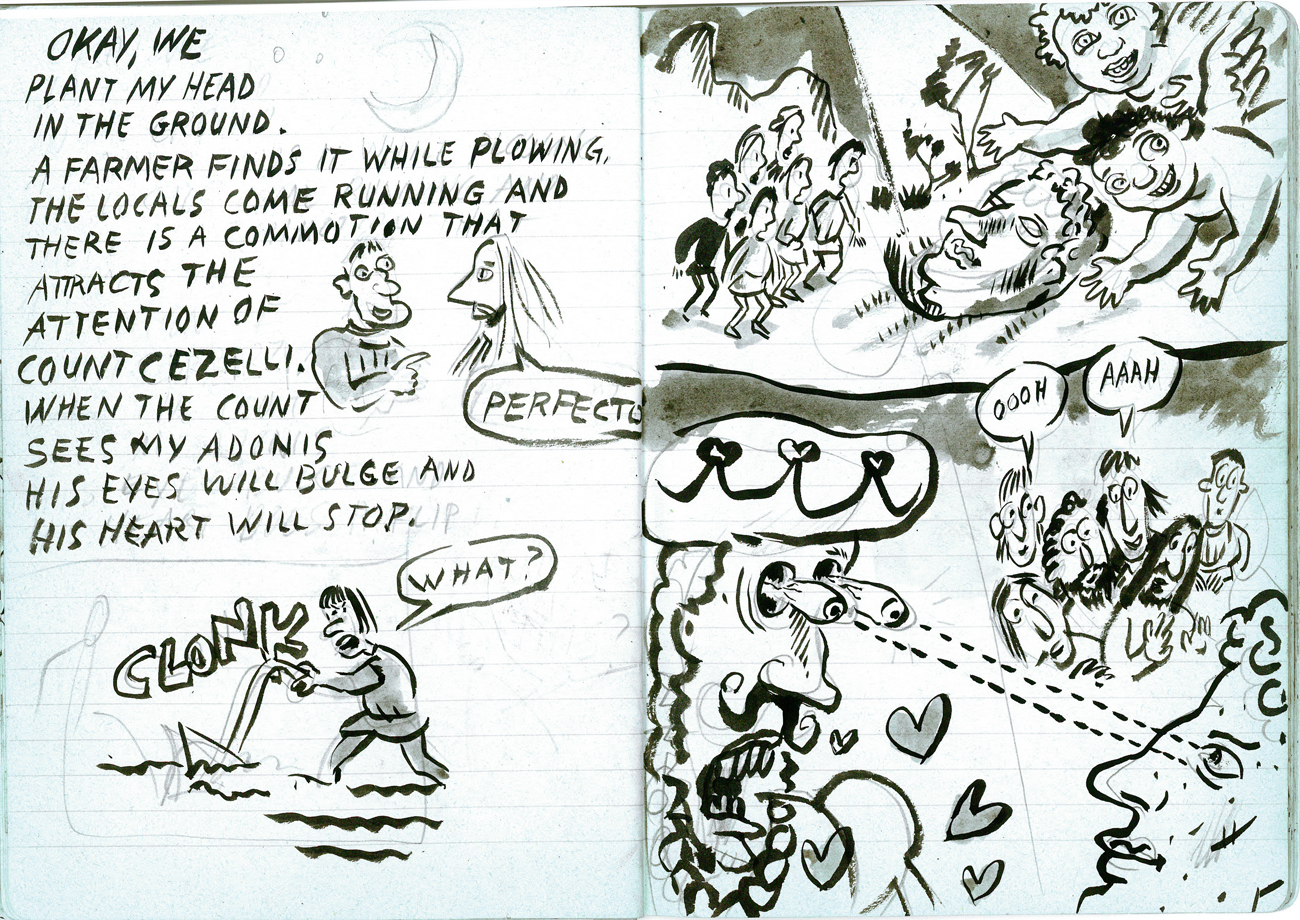 OKAY, WE
PLANT MY HEAD
IN THE GROUND.
A FARMER FINDS IT WHILE PLOWING.
THE LOCALS COME RUNNING AND
THERE IS A COMMOTION THAT
ATTRACTS THE
ATTENTION OF
COUNT CEZELLI.
WHEN THE COUNT
SEES MY ADONIS
HIS EYES WILL BULGE AND
HIS HEART WILL STOP.
PERFECTO
WHAT?
CLONK
OOOH
AAAH